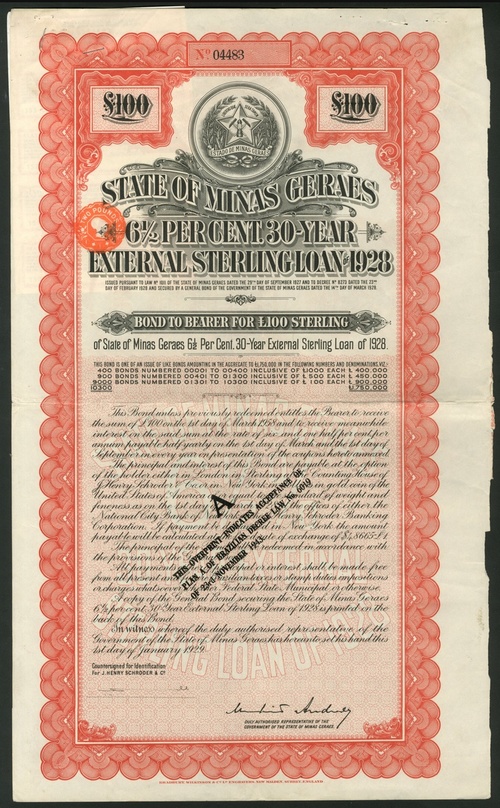 Nº 04483
£100
£100
ESTADO DE MINAS GERAES
STATE OF MINAS GERAES
6½ PER CENT. 30-YEAR
EXTERNAL STERLING LOAN 1928
ISSUED PURSUANT TO LAW Nº 1011 OF THE STATE OF MINAS GERAES DATED THE 20TH DAY OF SEPTEMBER 1927 AND TO DECREE Nº 8273 DATED THE 23RD
DAY OF FEBRUARY 1928 AND SECURED BY A GENERAL BOND OF THE GOVERNMENT OF THE STATE OF MINAS GERAES DATED THE 14TH DAY OF MARCH 1928.
BOND TO BEARER FOR £100 STERLING
of State of Minas Geraes 6½ Per Cent. 30-Year External Sterling Loan of 1928.
THIS BOND IS ONE OF AN ISSUE OF LIKE BONDS AMOUNTING IN THE AGGREGATE TO £1,750,000 IN THE FOLLOWING NUMBERS AND DENOMINATIONS, VIZ:
400 BONDS NUMBERED 00001 TO 00400 INCLUSIVE OF £1,000 EACH £ 400,000
900 BONDS NUMBERED 00401 TO 01300 INCLUSIVE OF £ 500 EACH £ 450,000
9000 BONDS NUMBERED 01301 TO 10300 INCLUSIVE OF £ 100 EACH £ 900,000
10300 £1,750,000
This Bond unless previously redeemed entitles the Bearer to receive
the sum of £100 on the 1st day of March 1958 and to receive meanwhile
interest on the said sum at the rate of six and one half per cent per
annum payable half yearly on the 1st day of March and the 1st day of
September in every year on presentation of the coupons hereto annexed.
The principal and interest of this Bond are payable at the option
of the holder either in London in Sterling at the Counting House of
J. Henry Schroder & Co. or in New York in gold coin of the
United States of America equal to the standard of weight and
fineness as on the 1st day of March at the offices of either the
National City Bank of New York or J. Henry Schroder Banking
Corporation. If payment be in New York the amount
payable will be calculated at the rate of exchange of $4.8665 = £1
The principal of the redeemed in accordance
with the provisions of the
All payments of principal or interest shall be made free
from all present and Brazilian taxes or stamp duties impositions
or charges whatsoever whether Federal State Municipal or otherwise.
A copy of the General Bond securing the State of Minas Geraes
6½ per cent. 30 Year External Sterling Loan of 1928 is printed on the
back of this Bond.
In witness whereof the duly authorised representative of the
Government of the State of Minas Geraes has hereunto set his hand this
1st day of January 1929.
A
THIS OVERPRINT INDICATES ACCEPTANCE OF
PLAN A OF BRAZILIAN DECREE LAW No. 6019
OF 23rd NOVEMBER 1943.
Countersigned for Identification
For J. HENRY SCHRODER & Cº
DULY AUTHORISED REPRESENTATIVE OF THE
GOVERNMENT OF THE STATE OF MINAS GERAES.
BRADBURY, WILKINSON & Cº Lᵈ ENGRAVERS, NEW MALDEN, SURREY, ENGLAND.